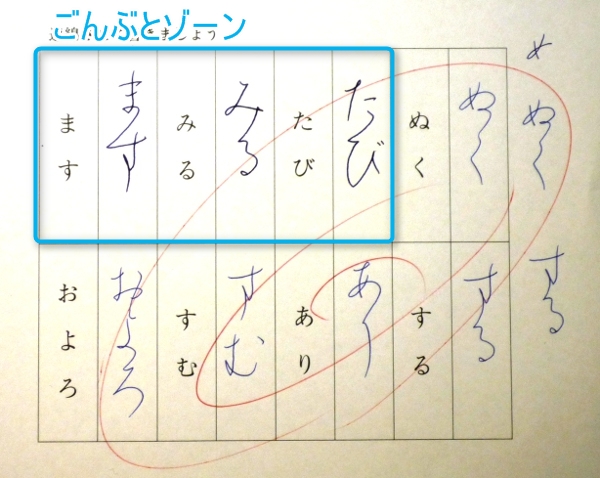 ごんぶとゾーン
ぬく
ぬく
ぬく
たび
たび
みる
みる
ます
ます
する
する
する
あり
あり
すむ
すむ
およろ
およろ